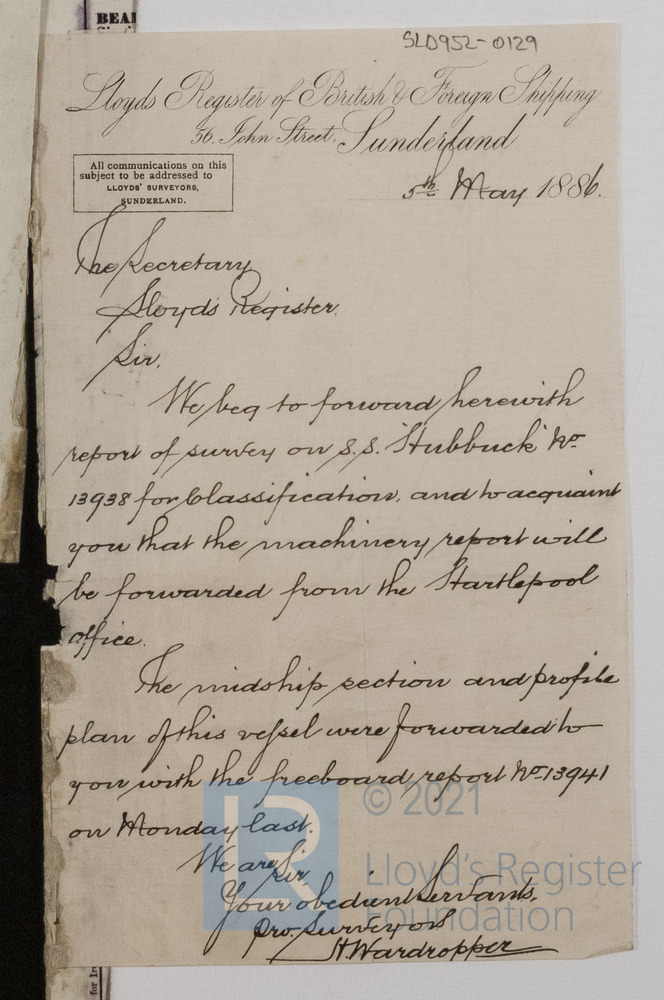 BEA
SLD952-0129
Lloyds Register of British & Foreign Shipping
56, John Street, Sunderland
All communications on this
subject to be addressed to
LLOYDS' SURVEYORS,
SUNDERLAND.
5th May 1886.
The Secretary
Lloyds Register.
Sir,
We beg to forward herewith
report of survey on S.S. "Hubbuck" No
13938 for Classification, and to acquaint
you that the machinery report will
be forwarded from the Hartlepool
office.
The midship section and profile
plan of this vessel were forwarded to
you with the freeboard report No 13941
on Monday last.
We are Sir
Your obedient Servants,
pro. Surveyors
H. Wardropper
© 2021
Lloyd's Register
Foundation
LR
for Ir